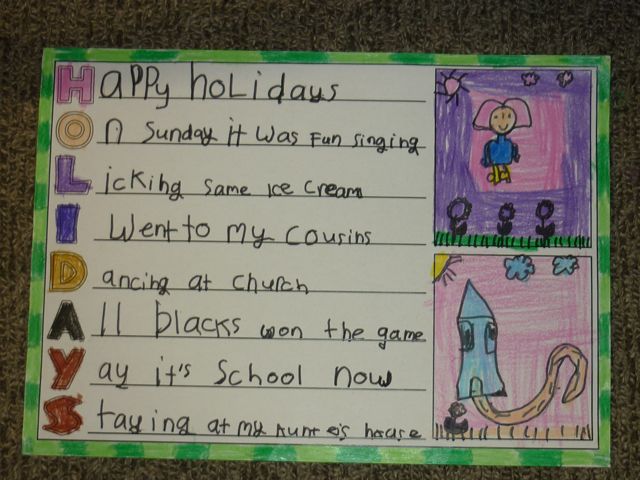 Happy holidays
On Sunday it was Fun singing
Licking same Ice Cream
I Went to my Cousins
Dancing at Church
All blacks won the game
Yay it's School now
Staying at my Aunte's house